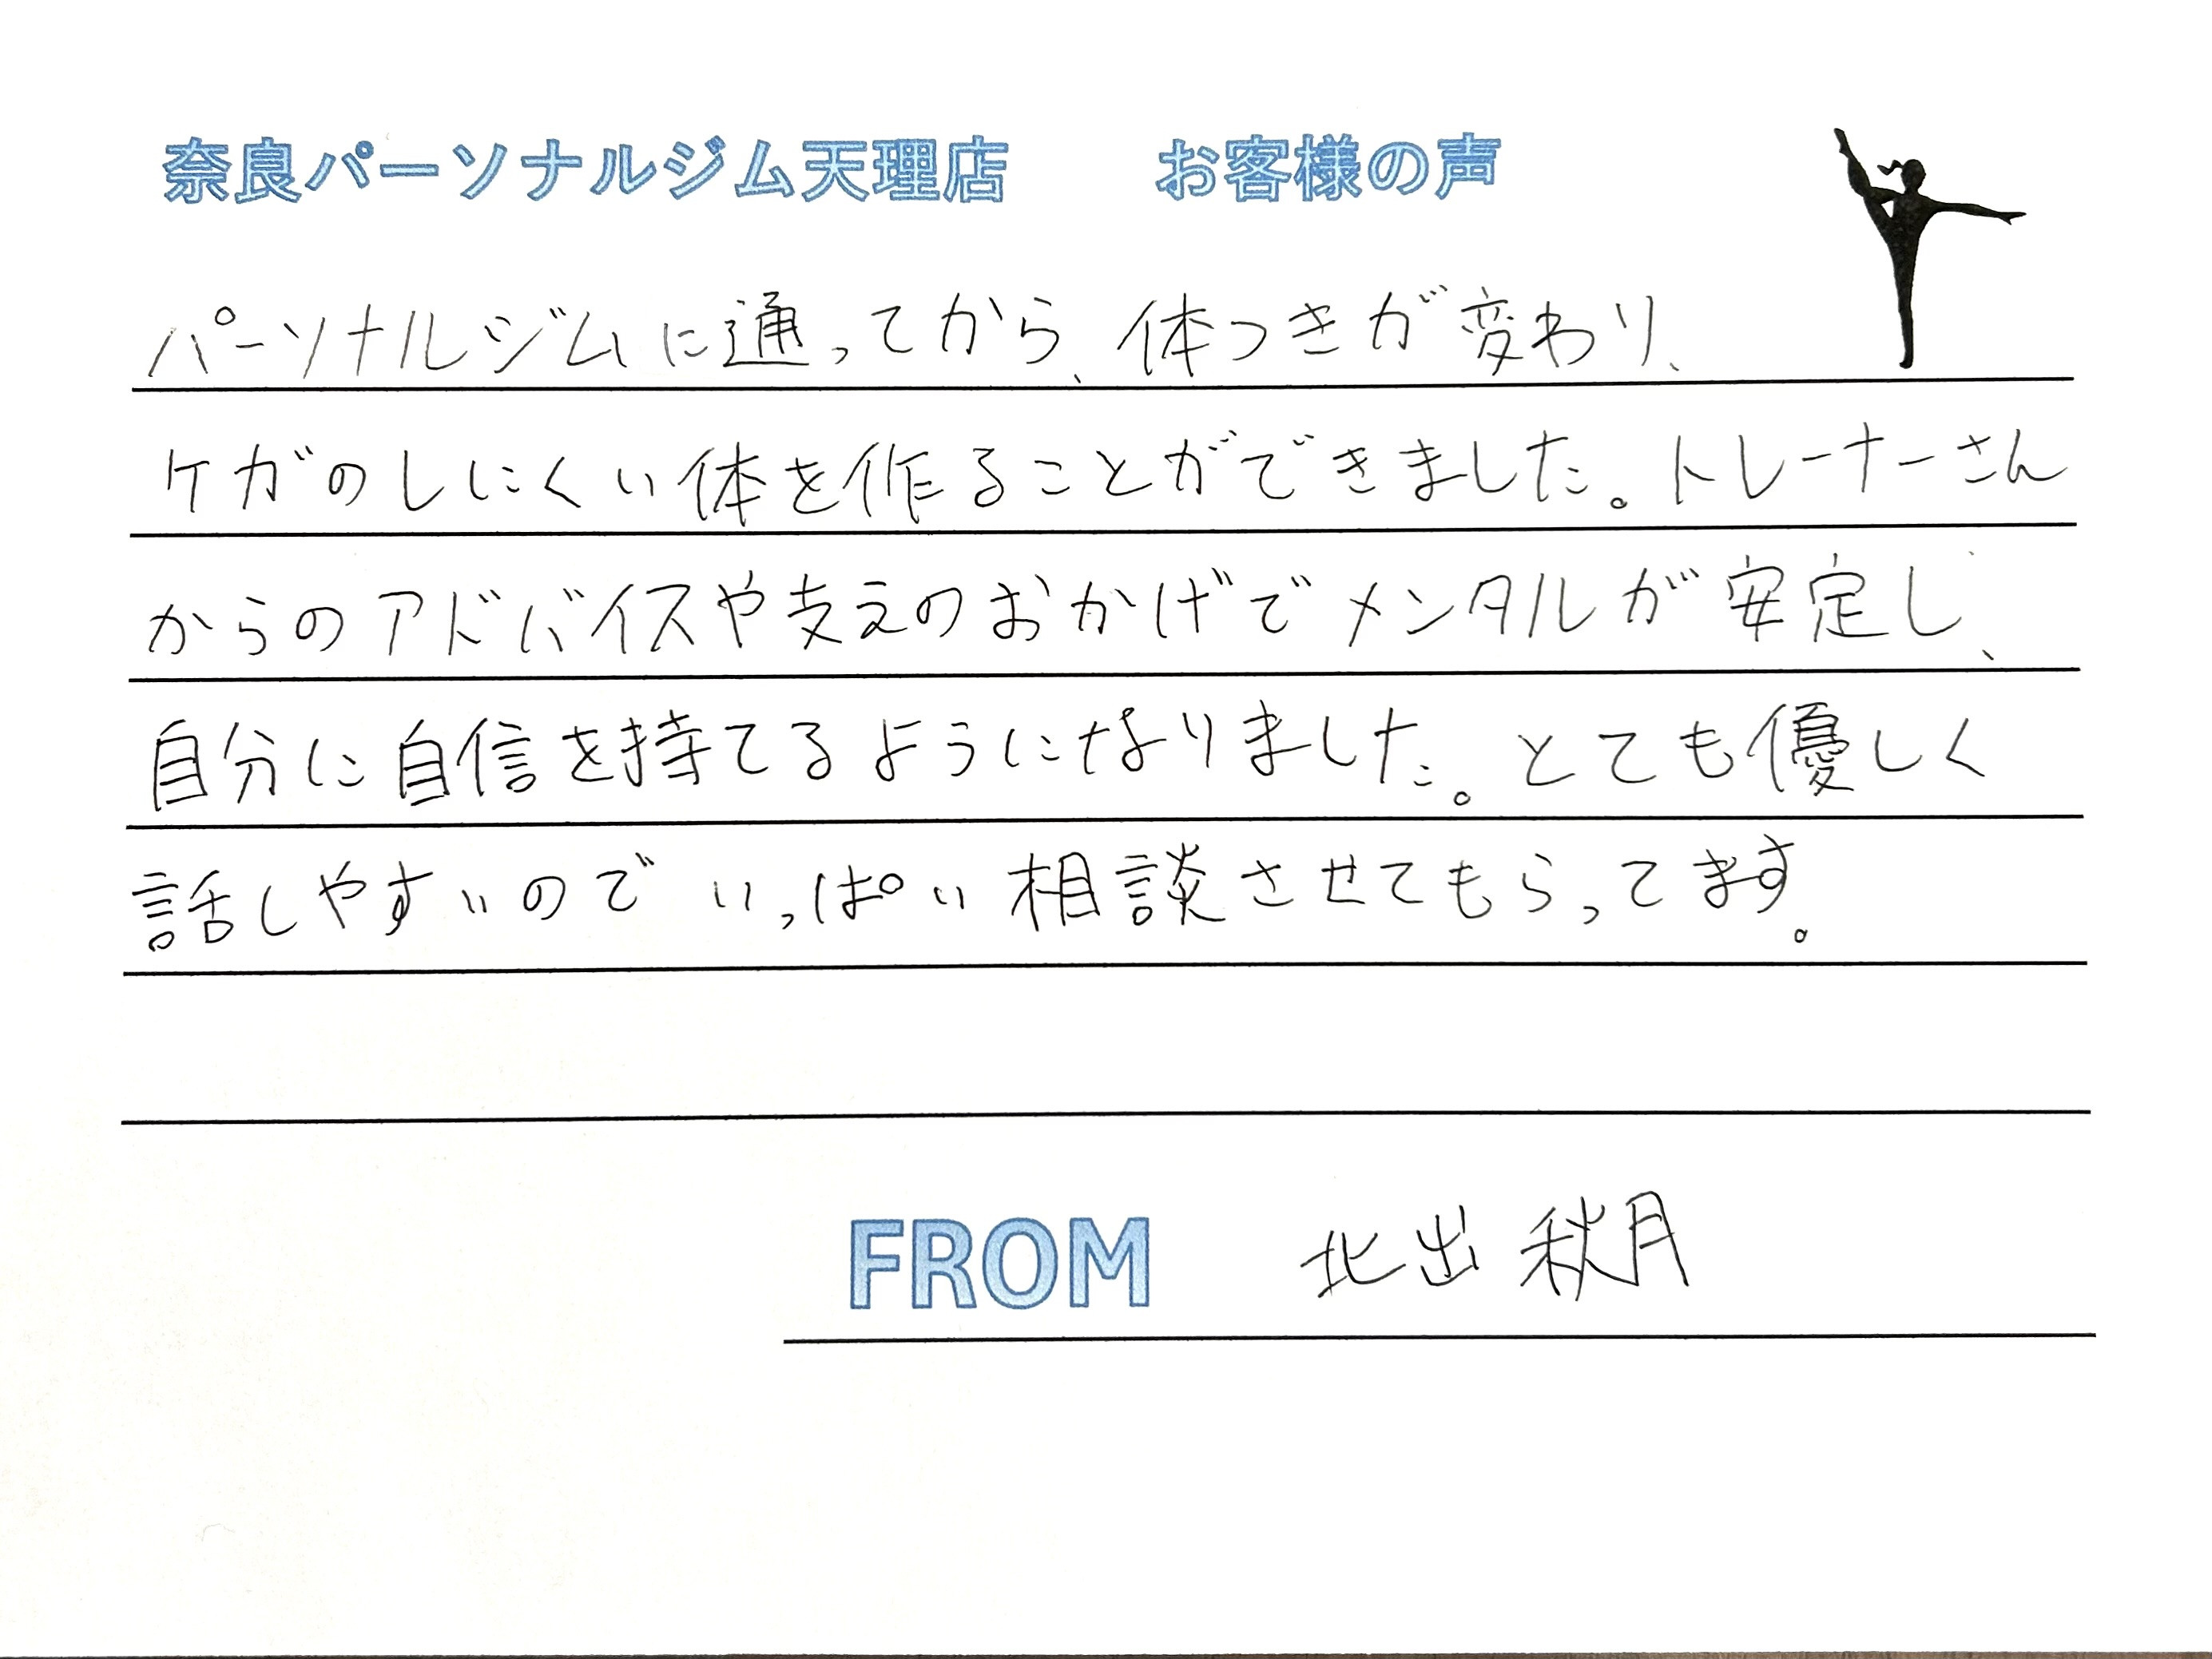 奈良パーソナルジム天理店　お客様の声
パーソナルジムに通ってから、体つきが変わり、
ケガのしにくい体を作ることができました。トレーナーさん
からのアドバイスや支えのおかげでメンタルが安定し、
自分に自信を持てるようになりました。とても優しく
話しやすいのでいっぱい相談させてもらってます。
FROM　北出 秋月